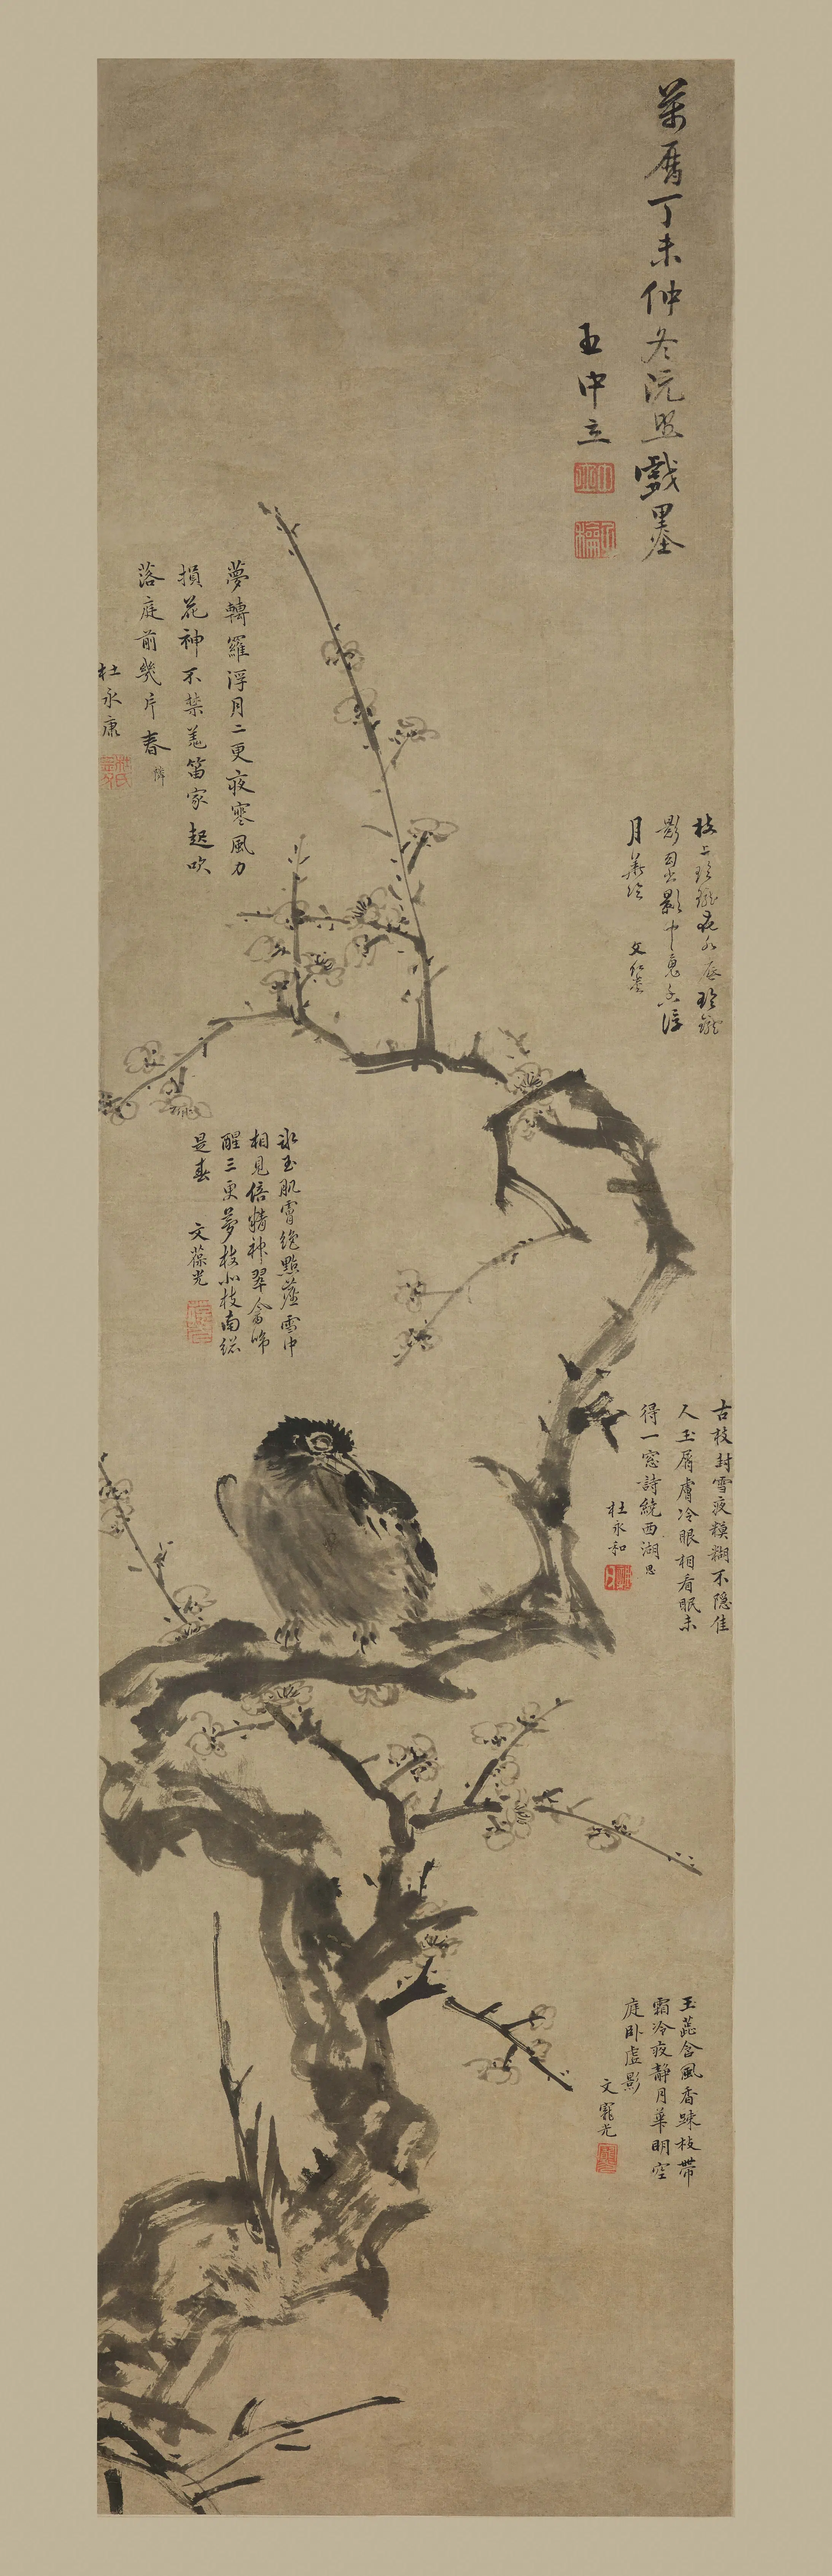 萬曆丁未仲冬沅照戲墨
王中立
枝上玲瓏花水底玲瓏
影
月
夢轉羅浮月二更夜寒風力
損花神不禁羌笛家家起吹
落庭前幾片春
杜永康
冰玉肌膚絶點塵雪中
相見倍精神翠禽啼
醒三更夢枝北枝南総
是春
文葆光
古枝封雪夜糢糊不隱佳
人玉屑膚冷眼相看眠未
得一窓詩繞西湖
杜永和
玉蕊含風香踈枝帶
霜冷夜靜月華明空
庭卧虛影
文寵光